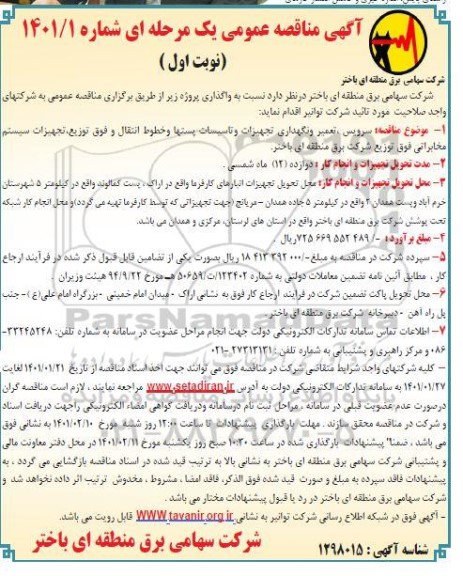 آگهی مناقصه عمومی یک مرحله ای شماره ۱۴۰۱/۱
(نوبت اول)
شرکت سهامی برق منطقه ای باختر
شرکت سهامی برق منطقه ای باختر درنظر دارد نسبت به واگذاری پروژه زیر از طریق برگزاری مناقصه عمومی به شرکتهای
واجد صلاحیت مورد تائید شرکت توانیر اقدام نماید:
۱- موضوع مناقصه: سرویس ،تعمیر ونگهداری تجهیزات وتاسیسات پستها وخطوط انتقال و فوق توزیع،تجهیزات سیستم
مخابراتی فوق توزیع شرکت برق منطقه ای باختر.
۲- مدت تحویل تجهیزات و انجام کار: دوازده (۱۲) ماه شمسی .
۳- محل تحویل تجهیزات و انجام کار: محل تحویل تجهیزات انبارهای کارفرما واقع در اراک ، پست کمالوند واقع در کیلومتر ۵ شهرستان
خرم آباد وپست همدان ۲ واقع در کیلومتر ۵ جاده همدان -مریانج (جهت تجهیزاتی که توسط کارفرما تهیه می گردد)و محل انجام کار شبکه
تحت پوشش شرکت برق منطقه ای باختر واقع در استان های لرستان، مرکزی و همدان می باشد.
۴- مبلغ برآورده : -/۴۸۹ ۵۵۲ ۶۶۹ ۷۲۵ریال .
۵- سپرده شرکت در مناقصه به مبلغ-/۰۰۰ ۳۹۲ ۴۱۳ ۱۸ ریال بصورت یکی از تضامین قابل قبول ذکر شده در فرآیند ارجاع
کار ، مطابق آئین نامه تضمین معاملات دولتی به شماره ۱۲۳۴۰۲/ت۵۰۶۵۹ه مورخ ۹۴/۹/۲۲ هیئت وزیران .
۶- محل تحویل پاکت تضمین شرکت در فرآیند ارجاع کار فوق به نشانی اراک - میدان امام خمینی -بزرگراه امام علی(ع)- جنب
پل راه آهن -دبیرخانه شرکت برق منطقه ای باختر .
۷- اطلاعات تماس سامانه تدارکات الکترونیکی دولت جهت انجام مراحل عضویت در سامانه به شماره تلفن: ۳۳۲۴۵۲۴۸-
۰۸۶ و مرکز راهبری و پشتیبانی به شماره تلفن: ۲۷۳۱۳۱۳۱-۰۲۱
- کلیه شرکتهای واجد شرایط متقاضی شرکت در مناقصه فوق می توانند جهت اخذ اسناد مناقصه از تاریخ ۱۴۰۱/۰۱/۲۱ لغایت
۱۴۰۱/۰۱/۲۷ به سامانه تدارکات الکترونیکی دولت به آدرس www.setadiran.ir مراجعه نمایند ، لازم است مناقصه گران
درصورت عدم عضویت قبلی در سامانه ، مراحل ثبت نام درسامانه ودریافت گواهی امضاء الکترونیکی راجهت دریافت اسناد
و شرکت در مناقصه محقق سازند . مهلت بارگذاری پیشنهادات تا ساعت ۱۲:۰۰ روز شنبه مورخ ۱۴۰۱/۰۲/۱۰ به نشانی فوق
می باشد ، ضمنا" پیشنهادات بارگذاری شده در ساعت ۱۰:۳۰ صبح روز یکشنبه مورخ ۱۴۰۱/۰۲/۱۱ در محل دفتر معاونت مالی
و پشتیبانی شرکت سهامی برق منطقه ای باختر به نشانی بالا به ترتیب قید شده در اسناد مناقصه بازگشایی می گردد ، به
پیشنهادات فاقد سپرده به مبلغ و صورت قید شده فوق الذکر، فاقد امضا ، مشروط ، مخدوش ترتیب اثر داده نخواهد شد و
شرکت سهامی برق منطقه ای باختر در رد یا قبول پیشنهادات مختار می باشد .
- آگهی فوق در شبکه اطلاع رسانی شرکت توانیر به نشانی WWW.tavanir.org.ir قابل رویت می باشد.
شناسه آگهی : ۱۲۹۸۰۱۵
شرکت سهامی برق منطقه ای باختر